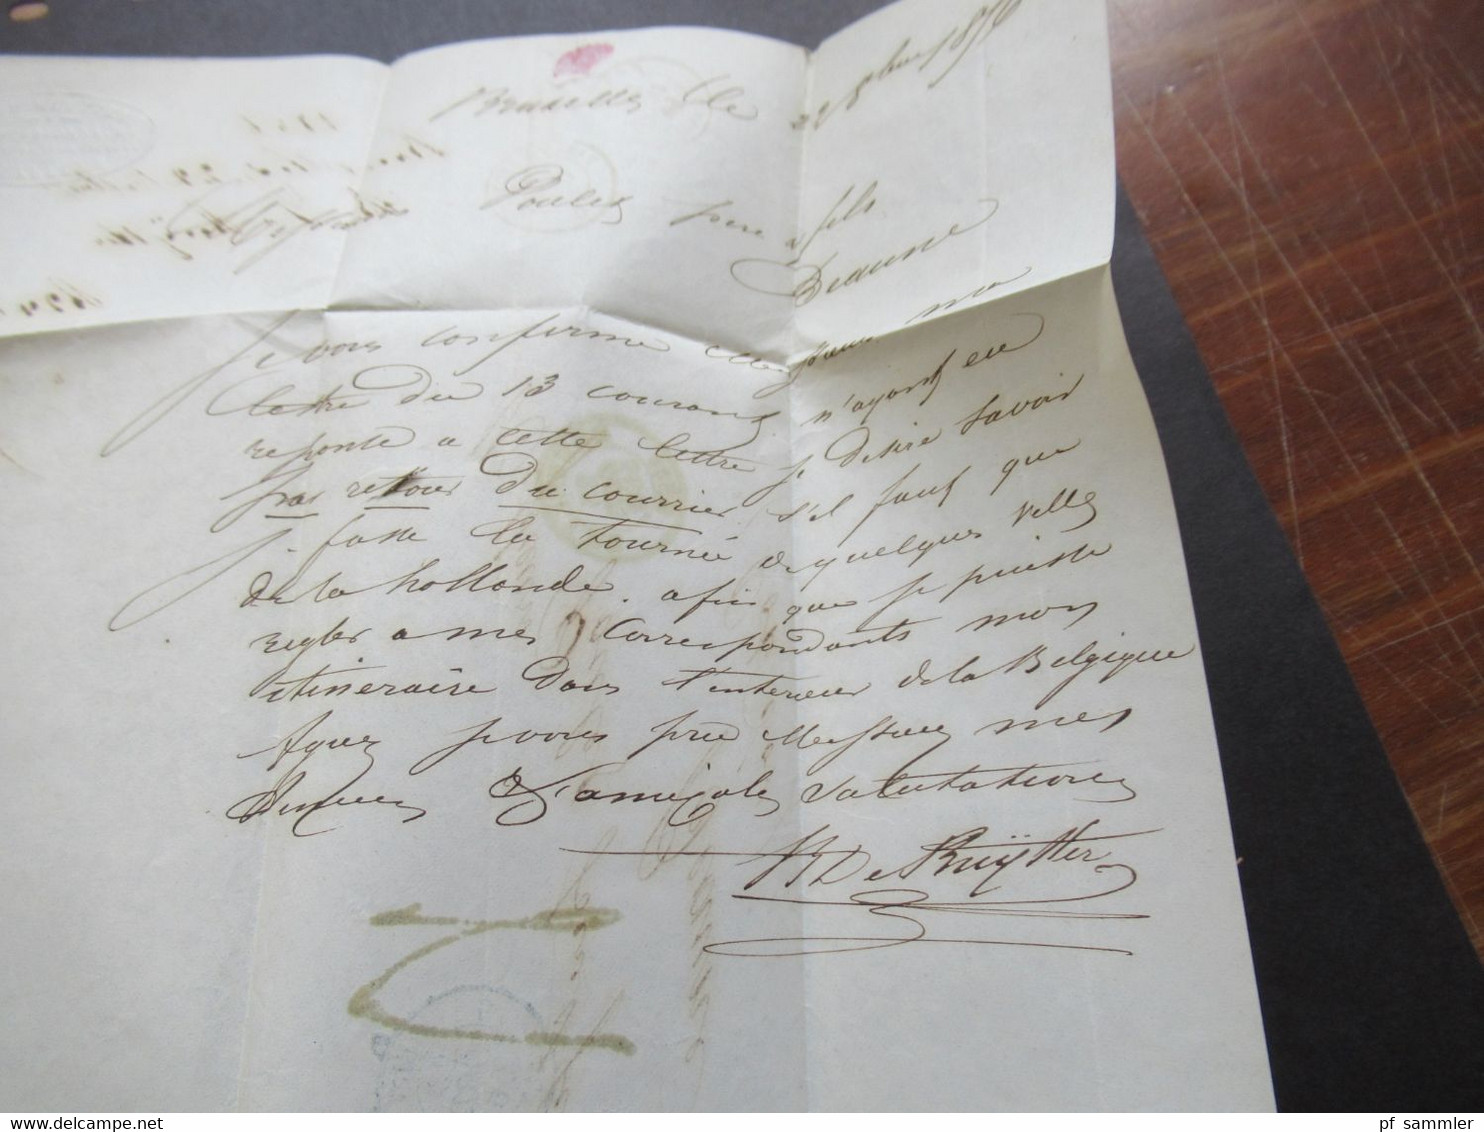 Bruxelles le 22 8bre 1856
Poulet père & fils
Beaune
Je vous confirme Messieurs ma
lettre du 13 courant n'ayant eu
reponse a cette lettre je desire savoir
par retour du courrier s'il faut que
je fasse la tournée de quelques villes
de la hollande. afin que je puisse
regler a mes correspondants mon
itineraire dans l'interieur de la Belgique
Agreez je vous prie Messieurs mes
sinceres & amicales salutations
De Ruÿtter
pf sammler